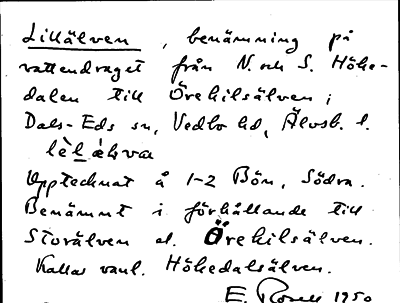 Lillälven, benämning på
vattendraget från N. och S. Höke-
dalen till Örekilsälven i
Dals-Eds sn, Vedbo hd, Älvsb. l.
lèlæ̀lva
Upptecknat å 1-2 Bön, Södra.
Benämnt i förhållande till
Storälven el. Örekilsälven.
Kallas vanl. Hökedalsälven.
E. 1950